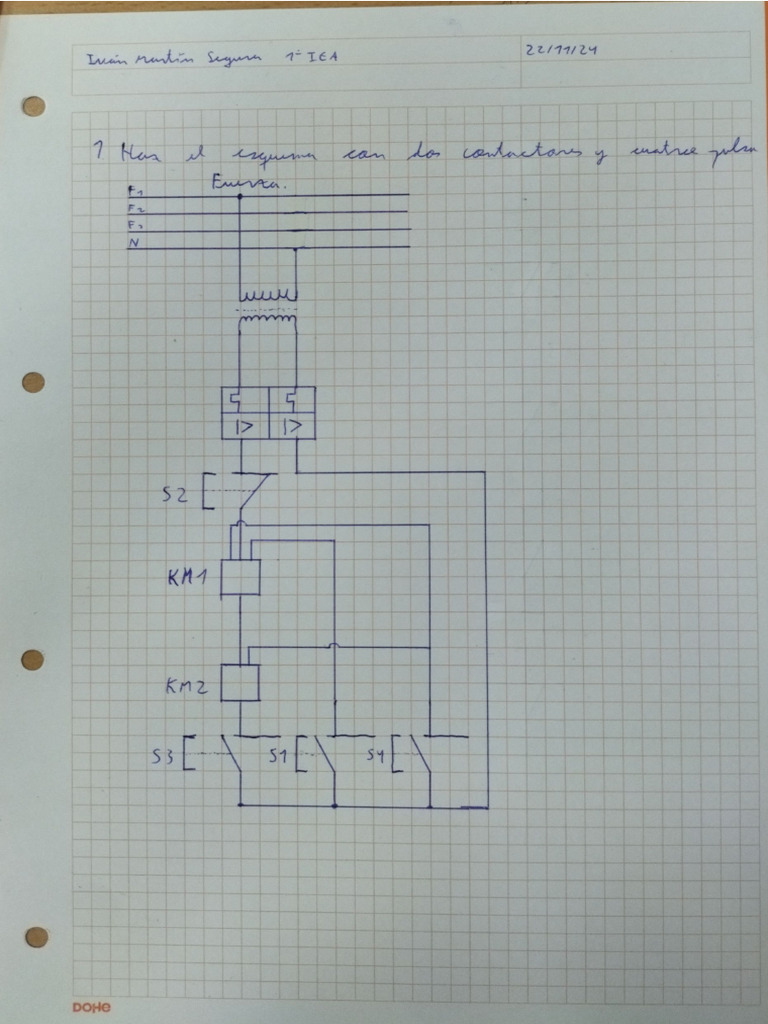 Iván Martín Segura 1º IEA
22/11/24
1 Haz el esquema con dos contactores y cuatro pulsa
Fuerza.
F1
F2
F3
N
I> I>
S2
KM1
KM2
S3 S1 S4
DOHE